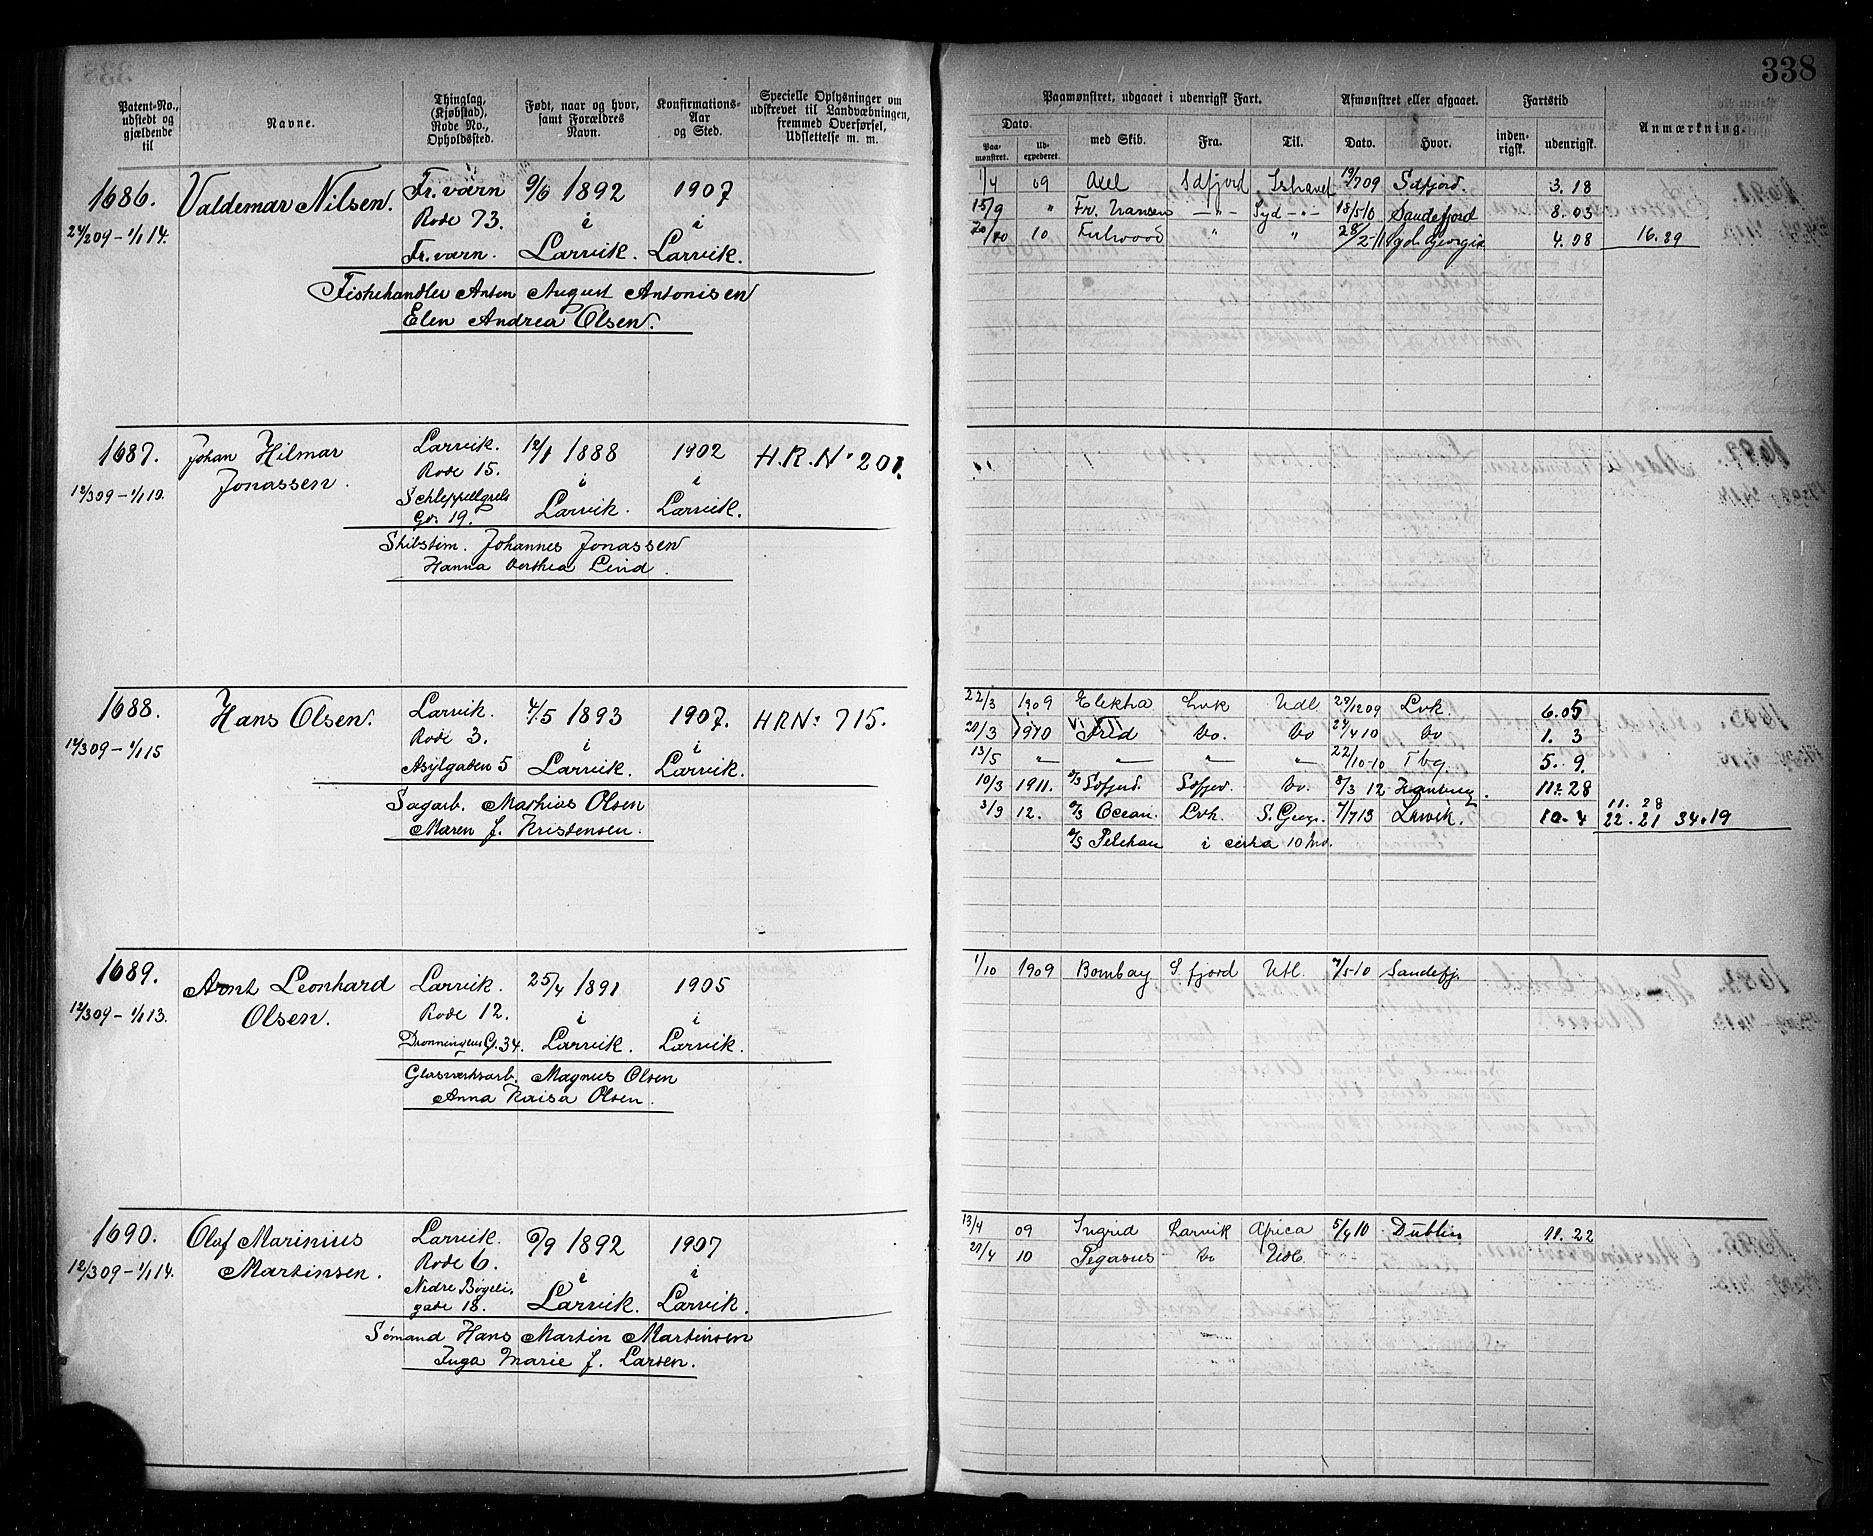 338
Patent-No., udstedt og gjældende til
Navne.
Thinglag, (Kjøbstad), Rode No., Opholdssted.
Født, naar og hvor, samt Forældres Navn.
Konfirmations-Aar og Sted.
Specielle Oplysninger om udskrevet til Landvæbningen, fremmed Overførsel, Udslettelse m. m.
Paamønstret, udgaaet i udenrigsk Fart.
Dato.
Paa-mønstret.
Ud-expederet.
med Skib.
Fra.
Til.
Afmønstret eller afgaaet.
Dato.
Hvor.
Fartstid
inden-rigsk.
udenrigsk.
Anmærkning.
1686. Valdemar Nilsen. Fr. værn 9/6 1892 1907
Rode 73. i i
24/2 09 - 1/1 14. Fr. værn. Larvik. Larvik.
Fiskehandler Anton August Antonisen
Elen Andrea Olsen.
1/4 09 Axel Sdfjord Ishavet 19/7 09 Sdfjord. 3. 18
15/9 " Fr. Nansen -"- Syd -"- 18/5 10 Sandefjord 8. 03
10 Fulwood " " 28/2-11 Syd. Georgia 4. 08 16. 29
1687. Johan Hilmar Larvik. 12/1 1888 1902 H.R.No 201.
Jonassen. Rode 15. i i
12/3 09 - 1/1 10. Schleppelgrels Gd. 19. Larvik. Larvik.
Skibstøm. Johannes Jonassen
Hanna Dorthea Lind.
1688. Hans Olsen. Larvik. 4/5 1893 1907. H R No: 715.
Rode 3. i i
12/3 09 - 1/1 15 Asylgaden 5 Larvik. Larvik.
Sagarb. Mathias Olsen
Maren f. Kristensen.
22/3 1909 Elektra Lvk Udl 29/12 09 Lvk. 6. 05
20/3 1910 Frid do. do 24/4 10 do 1. 3
13/5 " — — " 22/10-10 Tbg. 5. 9.
10/3 1911. Sdfjord. Sdfjord. do. 8/3 12 11. 28
3/9 12. Ocean. Lvk. S. Georg. 7/7 13 Larvik. 10. 4 11. 28
22. 21 34.19
Pelikan i cirka 10 Md.
1689. Arnt Leonhard Larvik. 25/4 1891 1905
Olsen. Rode 12. i i
12/3 09 - 1/1 13. Dronningens G. 34. Larvik. Larvik.
Glasværksarb. Magnus Olsen
Anna Kaisa Olsen.
1/10 1909 Bombay S. fjord Utl. 7/5-10 Sandefj.
1690. Olaf Marinius Larvik. 9/9 1892 1907
Martinsen. Rode 6. i i
12/3 09 - 1/1 14. Nedre Bøgeli. gade 18. Larvik. Larvik.
Sømand Hans Martin Martinsen
Inga Marie f. Larsen.
13/4 09 Ingrid Larvik Africa 5/4 10 Dublin 11. 22
27/4 10 Pegasus do Udl.